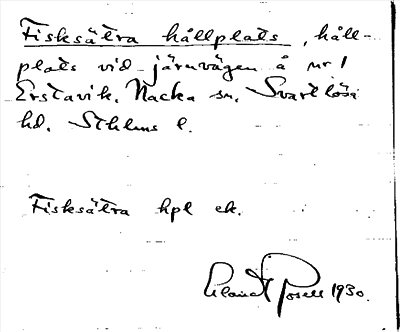 Fisksätra hållplats, håll-
plats vid järnvägen å nr 1
Erstavik. Nacka sn. Svartlösa
hd. Sthlms l.
Fisksätra hpl ek.
1930.